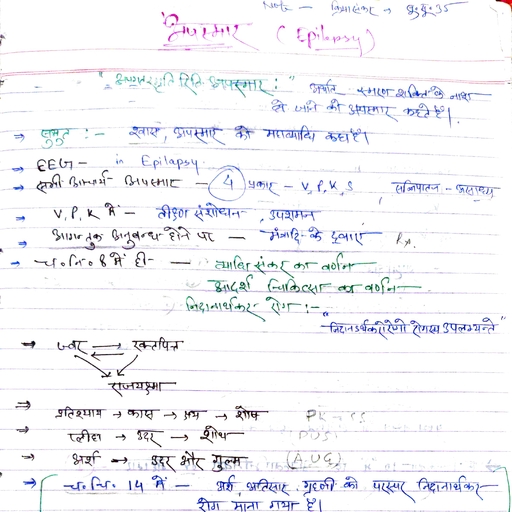 Note - क्रियासंकर → सु.सू.35
अपस्मार (Epilapsy)
"अपगतस्मृतिरिति अपस्मारः" अर्थात् स्मरण शक्ति के नाश
हो जाने को अपस्मार कहते हैं।
→ सुश्रुत :- अपस्मार को महाव्याधि कहा है।
→ EEG - in Epilapsy
→ सभी आचार्य - अपस्मार - 4 प्रकार - V, P, K, S , सन्निपातज - असाध्य
→ V, P, K में - तीक्ष्ण संशोधन, उपशमन
→ आगन्तुक अनुबन्ध होने पर - मंत्रादि के द्वारा Rx.
→ च.नि.8 में ही - व्याधि संकर का वर्णन
आदर्श चिकित्सा का वर्णन
निदानार्थकर रोग :-
"निदानार्थकरो रोगो रोगस्य उपलभ्यते"
→ ज्वर → रक्तपित्त
राजयक्ष्मा
⇒ प्रतिश्याय → कास → क्षय → शोष
⇒ प्लीहा → उदर → शोथ
⇒ अर्श → उदर और गुल्म (A.U.G)
→ च.चि. 14 में - अर्श, अतिसार, ग्रहणी को परस्पर निदानार्थकर
रोग माना गया है।